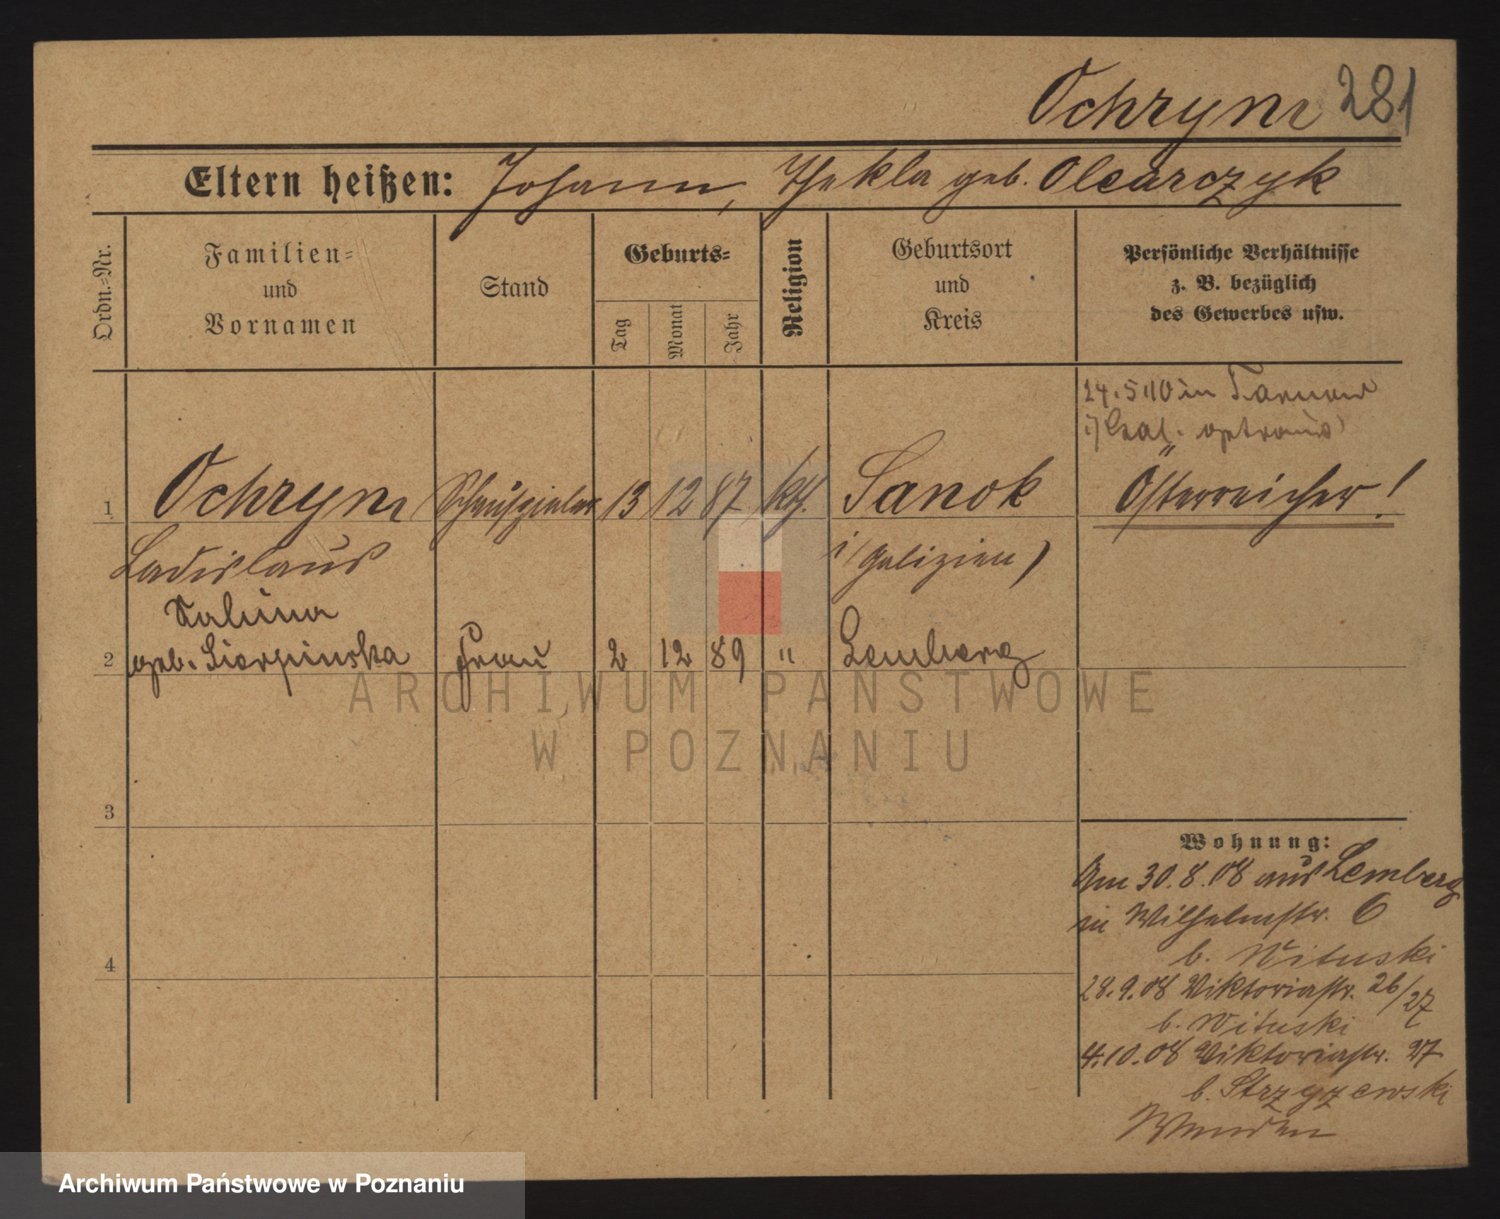 Ochrym 281
Eltern heißen: Johann, Thekla geb. Olearczyk
Ordn.=Nr.
Familien=
und
Vornamen
Stand
Geburts=
Tag
Monat
Jahr
Religion
Geburtsort
und
Kreis
Persönliche Verhältnisse
z. B. bezüglich
des Gewerbes usw.
24.5.10 in Tarnow
i/Gal.
1 Ochrym Schauspieler 13 12 87 kth. Sanok Österreicher!
Ladislaus i/Galizien)
Sabina
2 geb. Sierpinska Frau 2 12 89 " Lemberg
3
4
Wohnung:
Am 30.8.08 aus Lemberg
in Wilhelmstr. 6
b. Wituski
28.9.08 Viktoriastr. 26/27
b. Wituski
4.10.08 Viktoriastr. 27
b. Strzyzewski
Wenden
ARCHIWUM PAŃSTWOWE
W POZNANIU
Archiwum Państwowe w Poznaniu